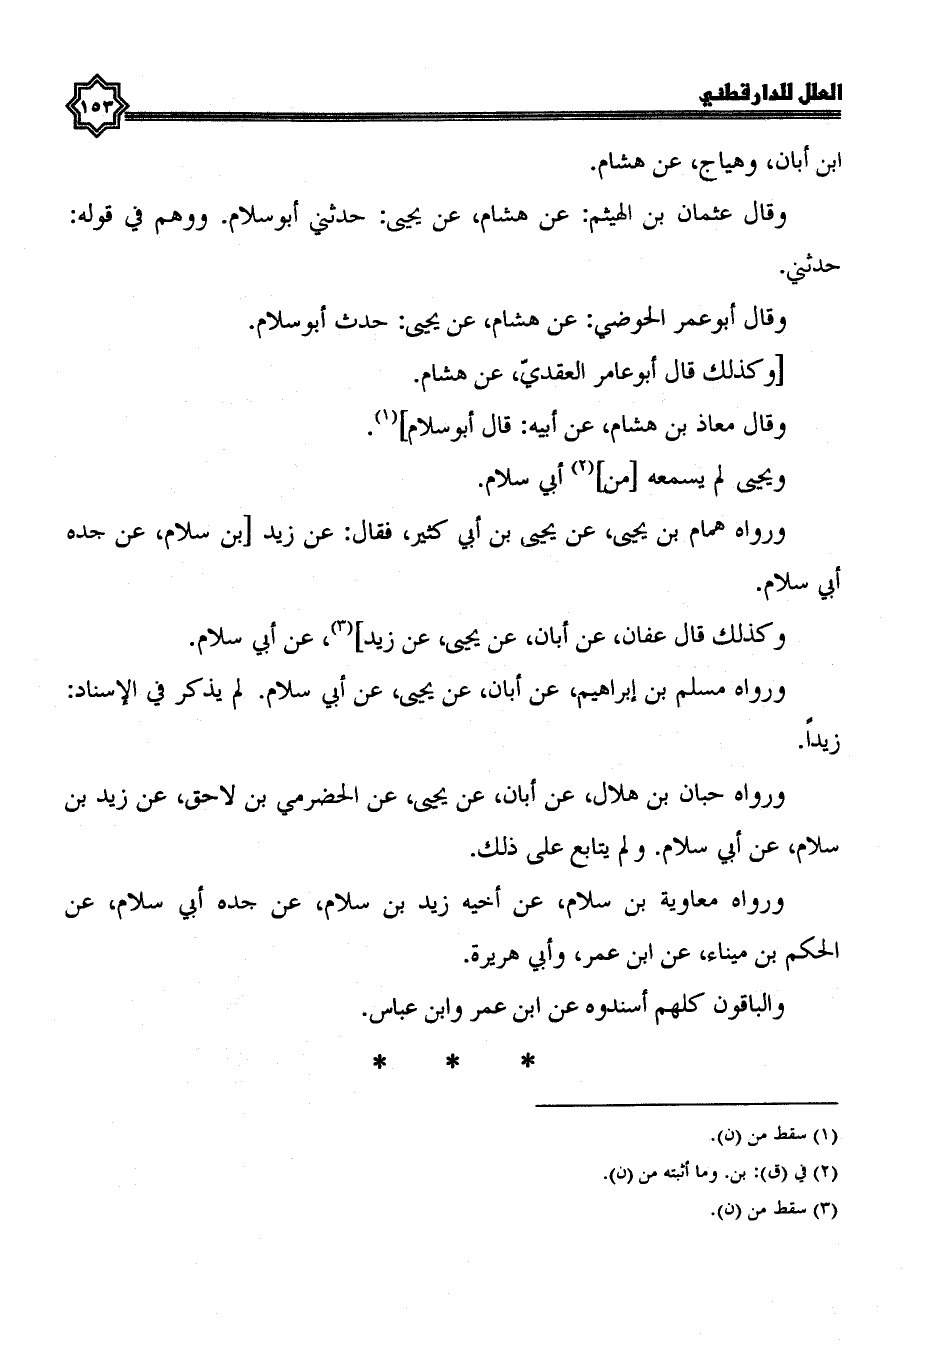 العلل للدارقطني
١٥٣
ابن أبان، وهياج، عن هشام.
وقال عثمان بن الهيثم: عن هشام، عن يحيى: حدثني أبوسلام. ووهم في قوله:
حدثني.
وقال أبوعمر الحوضي: عن هشام، عن يحيى: حدث أبوسلام.
[وكذلك قال أبوعامر العقديّ، عن هشام.
وقال معاذ بن هشام، عن أبيه: قال أبوسلام](١).
ويحيى لم يسمعه [من](٢) أبي سلام.
ورواه همام بن يحيى، عن يحيى بن أبي كثير، فقال: عن زيد [بن سلام، عن جده
أبي سلام.
وكذلك قال عفان، عن أبان، عن يحيى، عن زيد](٣)، عن أبي سلام.
ورواه مسلم بن إبراهيم، عن أبان، عن يحيى، عن أبي سلام. لم يذكر في الإسناد:
زيداً.
ورواه حبان بن هلال، عن أبان، عن يحيى، عن الحضرمي بن لاحق، عن زيد بن
سلام، عن أبي سلام. ولم يتابع على ذلك.
ورواه معاوية بن سلام، عن أخيه زيد بن سلام، عن جده أبي سلام، عن
الحكم بن ميناء، عن ابن عمر، وأبي هريرة.
والباقون كلهم أسندوه عن ابن عمر وابن عباس.
* * *
(١) سقط من (ن).
(٢) في (ق): بن. وما أثبته من (ن).
(٣) سقط من (ن).